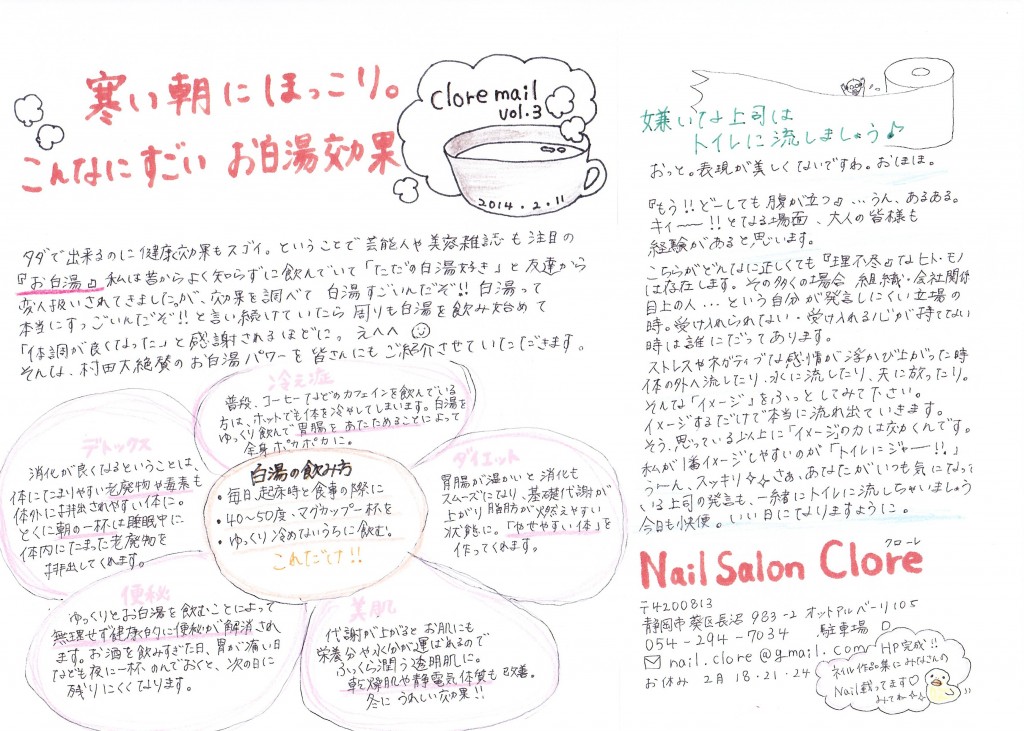 寒い朝にほっこり。
こんなにすごい お白湯効果
Clore mail
vol.3
2014.2.11
タダで出来るのに健康効果もスゴイ。ということで芸能人や美容雑誌も注目の
『お白湯』。私は昔からよく知らずに飲んでいて「ただの白湯好き」と友達から
変人扱いされてきましたが、効果を調べて 白湯すごいんだぞ!! 白湯って
本当にすっごいんだぞ!!と言い続けていたら 周りも白湯を飲み始めて
「体調が良くなった」と感謝されるほどに。えへへ
そんな、村田大絶賛のお白湯パワーを皆さんにもご紹介させていただきます。
冷え症
普段、コーヒーなどのカフェインを飲んでいる
方は、ホットでも体を冷やしてしまいます。白湯を
ゆっくり飲んで胃腸をあたためることによって
全身ポカポカに。
デトックス
消化が良くなるということは、
体にたまりやすい老廃物や毒素も
体外に排出されやすい体に。
とくに朝の一杯は睡眠中に
体内にたまった老廃物を
排出してくれます。
白湯の飲み方
・毎日、起床時と食事の際に
・40~50度、マグカップ一杯を
・ゆっくり冷めないうちに飲む。
これだけ!!
ダイエット
胃腸が温かいと消化も
スムーズになり、基礎代謝が
上がり脂肪が燃えやすい
状態に。「やせやすい体」を
作ってくれます。
便秘
ゆっくりとお白湯を飲むことによって
無理せず健康的に便秘が解消され
ます。お酒を飲みすぎた日、胃が痛い日
なども夜に一杯、のんでおくと、次の日に
残りにくくなります。
美肌
代謝が上がるとお肌にも
栄養分や水分が運ばれるので
ふっくら潤う透明肌に。
乾燥肌や静電気体質も改善。
冬にうれしい効果!!
嫌いな上司は
トイレに流しましょう♪
おっと。表現が美しくないですわ。おほほ。
『もう!!どーしても腹が立つ』…うん、あるある。
キィー!!となる場面、大人の皆様も
経験があると思います。
こちらがどんなに正しくても『理不尽』なヒト・モノ
は存在します。その多くの場合 組織・会社関係
目上の人…という自分が発言しにくい立場の
時。受け入れられない・受け入れる心が持てない
時は誰にだってあります。
ストレスやネガティブな感情が浮かび上がった時
体の外へ流したり、水に流したり、天に放ったり。
そんな「イメージ」をふっとしてみて下さい。
イメージするだけで本当に流れ出ていきます。
そう、思っている以上に「イメージ」の力は効くんです。
私が1番イメージしやすいのが「トイレにジャー!!」
うーん、スッキリ✧✧さぁ、あなたがいつも気になって
いる上司の発言も、一緒にトイレに流しちゃいましょう
今日も快便。いい日になりますように。
クローレ
Nail Salon Clore
〒4200813
静岡市葵区長沼983-2 オットアルベーリ105
054-294-7034 駐車場
✉ nail.clore@gmail.com
お休み 2月 18・21・24
HP完成!!
ネイル作品集にみなさんの
Nail載ってます♡
みてね✧✧